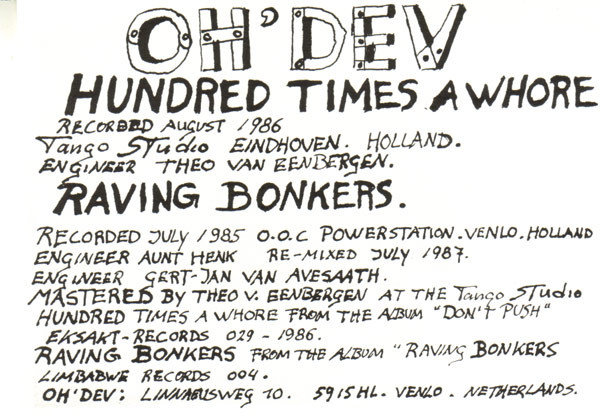 OH' DEV
HUNDRED TIMES A WHORE
RECORDED AUGUST 1986
Tango STudio EINDHOVEN. HOLLAND.
ENGINEER THEO VAN EENBERGEN.
RAVING BONKERS.
RECORDED JULY 1985 O.O.C POWERSTATION. VENLO. HOLLAND
ENGINEER AUNT HENK RE-MIXED JULY 1987.
ENGINEER GERT-JAN VAN AVESAATH.
MASTERED BY THEO V. EENBERGEN AT THE Tango STudio
HUNDRED TIMES A WHORE FROM THE ALBUM "DON'T PUSH"
EKSAKT-RECORDS 029-1986.
RAVING BONKERS FROM THE ALBUM "RAVING BONKERS
LIMBABWE RECORDS 004.
OH' DEV: LINNAEUSWEG 10. 5915 HL. VENLO. NETHERLANDS.